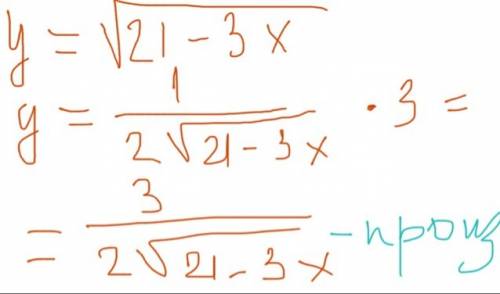 y = √21 - 3x
y = 1/(2√21 - 3x) · 3 =
= 3/(2√21 - 3x) - произ